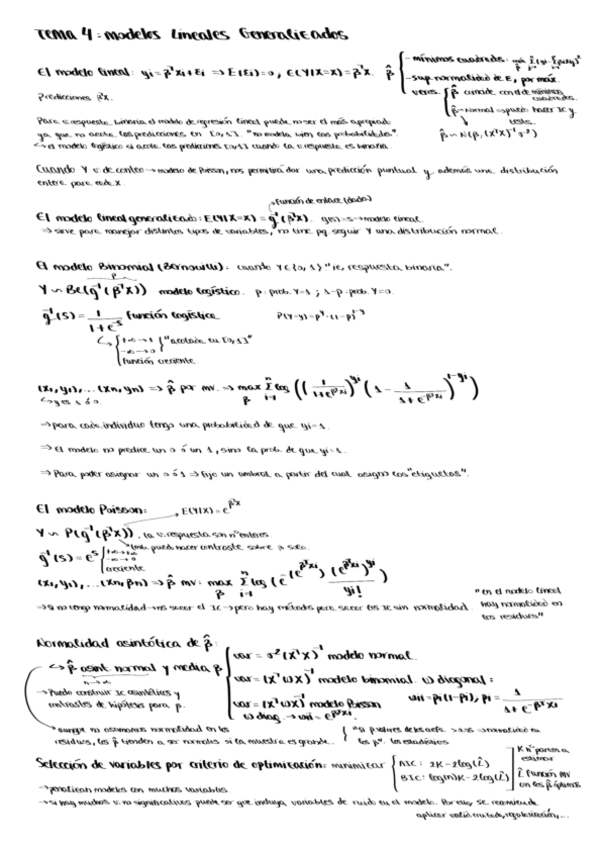 TEMA 4: Modelos Lineales Generalizados
El modelo lineal: yi = β'xi + Ei ⇒ E(Ei) = 0, E(Y|X=x) = β'x. β̂ { - mínimos cuadrados:
- sup. normalidad de E, por máx.
veros. { β̂ coincide con el de mínimos cuadrados.
Predicciones β'x.
β̂ ~ Normal → puedo hacer IC y tests.
Para v. respuesta binaria el modelo de regresión lineal puede no ser el más apropiado
β̂ ~ N(β, (X'X)⁻¹σ²)
ya que no acota las predicciones en [0,1]. "no modela bien las probabilidades".
↳ el modelo logístico si acota las predicciones [0,1] cuando la v. respuesta es binaria
Cuando Y v. de conteo → modelo de Poisson, nos permitirá dar una predicción puntual y además una distribución
entera para cada X.
→ función de enlace (dada)
El modelo lineal generalizado: E(Y|X=x) = g⁻¹(β'x). g(s)=s → modelo lineal.
⇒ sirve para manejar distintos tipos de variables, no tiene pq seguir Y una distribución normal.
El modelo Binomial (Bernouilli): cuando Y∈{0,1} "ie, respuesta binaria".
p
Y ~ Be(g⁻¹(β'x)) modelo logístico. p: prob. Y=1; 1-p: prob. Y=0.
g⁻¹(s) = 1/(1+e⁻ˢ) función logística P(Y=y) = pʸ·(1-p)¹⁻ʸ
↳ { +∞→1
-∞→0 } "acotada en [0,1]"
función creciente.
(x1,y1),...(xn,yn) ⇒ β̂ por mv. ⇒ max β Σ i=1 n log ((1/(1+e^-β'xi))^yi (1 - 1/(1+e^-β'xi))^1-yi)
↳ y es 1 ó 0.
⇒ para cada individuo tengo una probabilidad de que yi=1.
⇒ El modelo no predice un 0 ó un 1, sino la prob. de que yi=1.
⇒ Para poder asignar un 0 ó 1 ⇒ fijo un umbral a partir del cual asigno las "etiquetas".
El modelo Poisson: → E(Y|X) = e^β'x
Y ~ P(g⁻¹(β'x)). La v. respuesta son nº enteros.
puedo hacer contraste sobre
g⁻¹(s) = eˢ { +∞→+∞
-∞→0
creciente
(x1,y1),...(xn,yn) ⇒ β̂ mv: max β Σ i=1 n log (e^-(e^β'xi) (e^β'xi)^yi / yi!)
"en el modelo lineal
⇒ si no tengo normalidad → no sacar el IC → pero hay métodos para sacar los IC sin normalidad.
hay normalidad en
los residuos"
Normalidad asintótica de β̂:
var = σ²(X'X)⁻¹ modelo normal.
→ β̂ asint. normal y media β
n→∞
var = (X'WX)⁻¹ modelo binomial. W diagonal:
→ Puedo construir IC asintóticos y
contrastes de hipótesis para β.
wii = pi(1-pi), pi = 1/(1+e^-β'xi)
var = (X'WX)⁻¹ modelo Poisson
W diag. → wii = e^β'xi.
→ aunque no asumamos normalidad en los
residuos, los β̂ tienden a ser normales si la muestra es grande.
"Si p valores de los coefs. > 0.05 → normalidad en
los β". los estadísticos
Selección de variables por criterio de optimización: minimizar { AIC: 2K - 2log(L̂)
BIC: log(n)K - 2log(L̂) }
K nº param a
estimar
L̂ función MV
en los β̂ óptimos
→ penalizan modelos con muchas variables.
→ si hay muchas v. no significativas puede ser que incluya variables de ruido en el modelo. Por eso, se recomienda
aplicar valid. cruzada, regularización,...